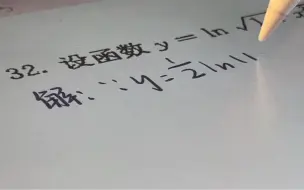 32. 设函数 y = ln √1
解: ∵ y = 1/2 ln(1